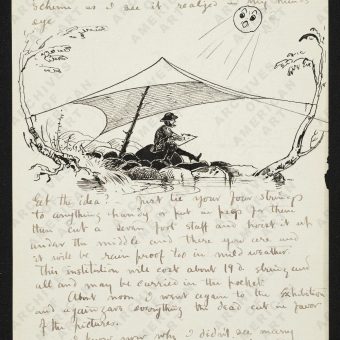 scheme as I see it realized in my mind's
eye
Get the idea? – Just tie your four strings
to anything handy or put in pegs for them
then cut a seven foot staff and hoist it up
under the middle and there you are and
it will be rain proof too in mild weather.
This institution will cost about 19 d. string and
all and may be carried in the pocket.
About noon I went again to the Exhibition
and again gave everything the dead cut in favor
of the pictures.
I know now why I didn't see many